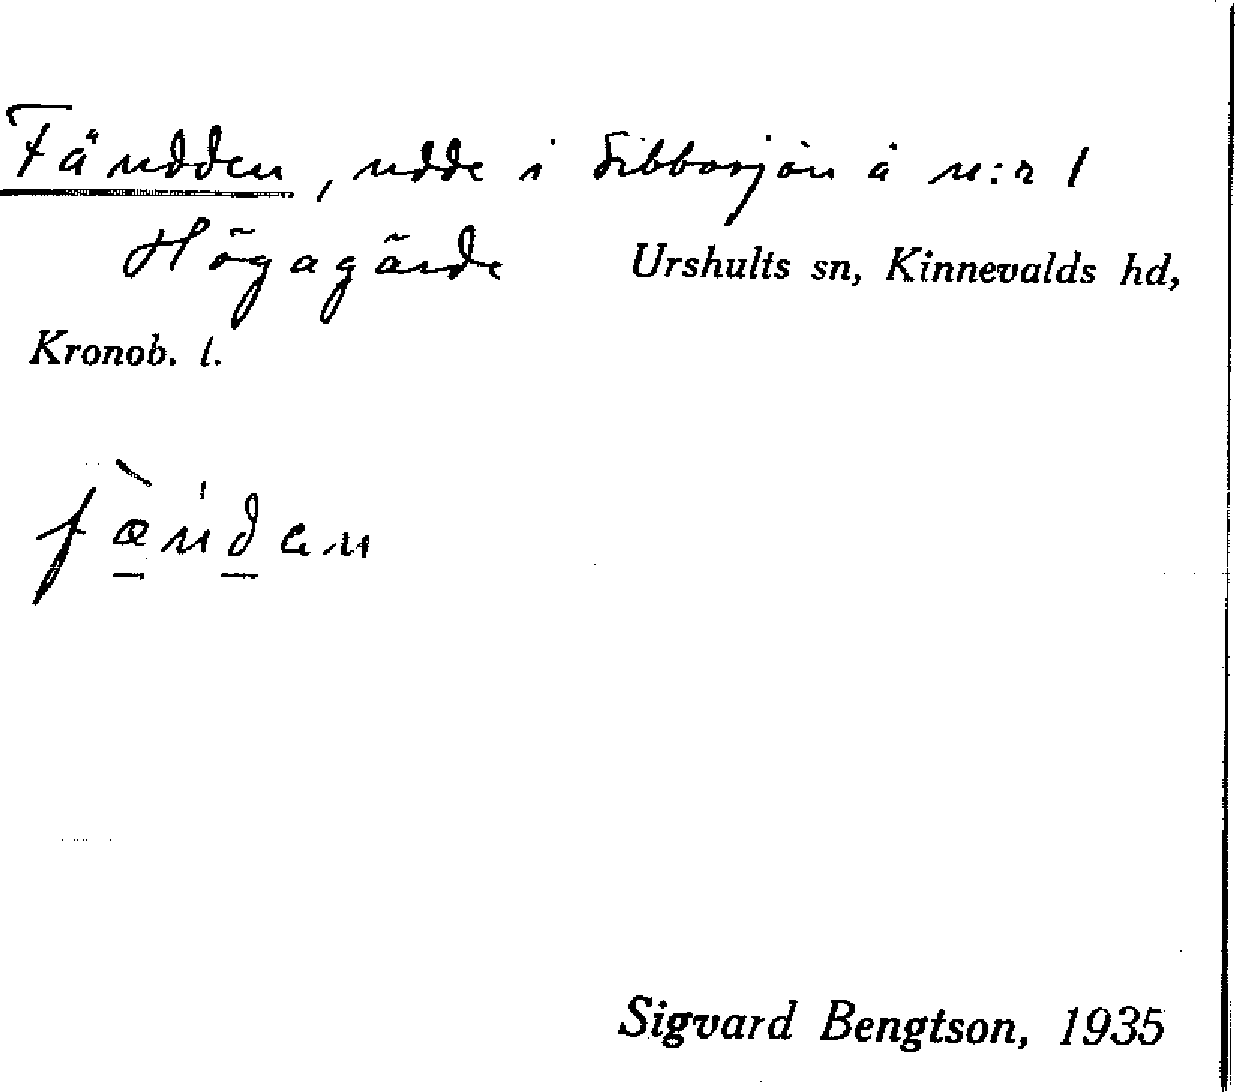 Fäudden, udde i Sibbosjön å n:r 1
Högagärde Urshults sn, Kinnevalds hd,
Kronob. l.
Sigvard Bengtson, 1935